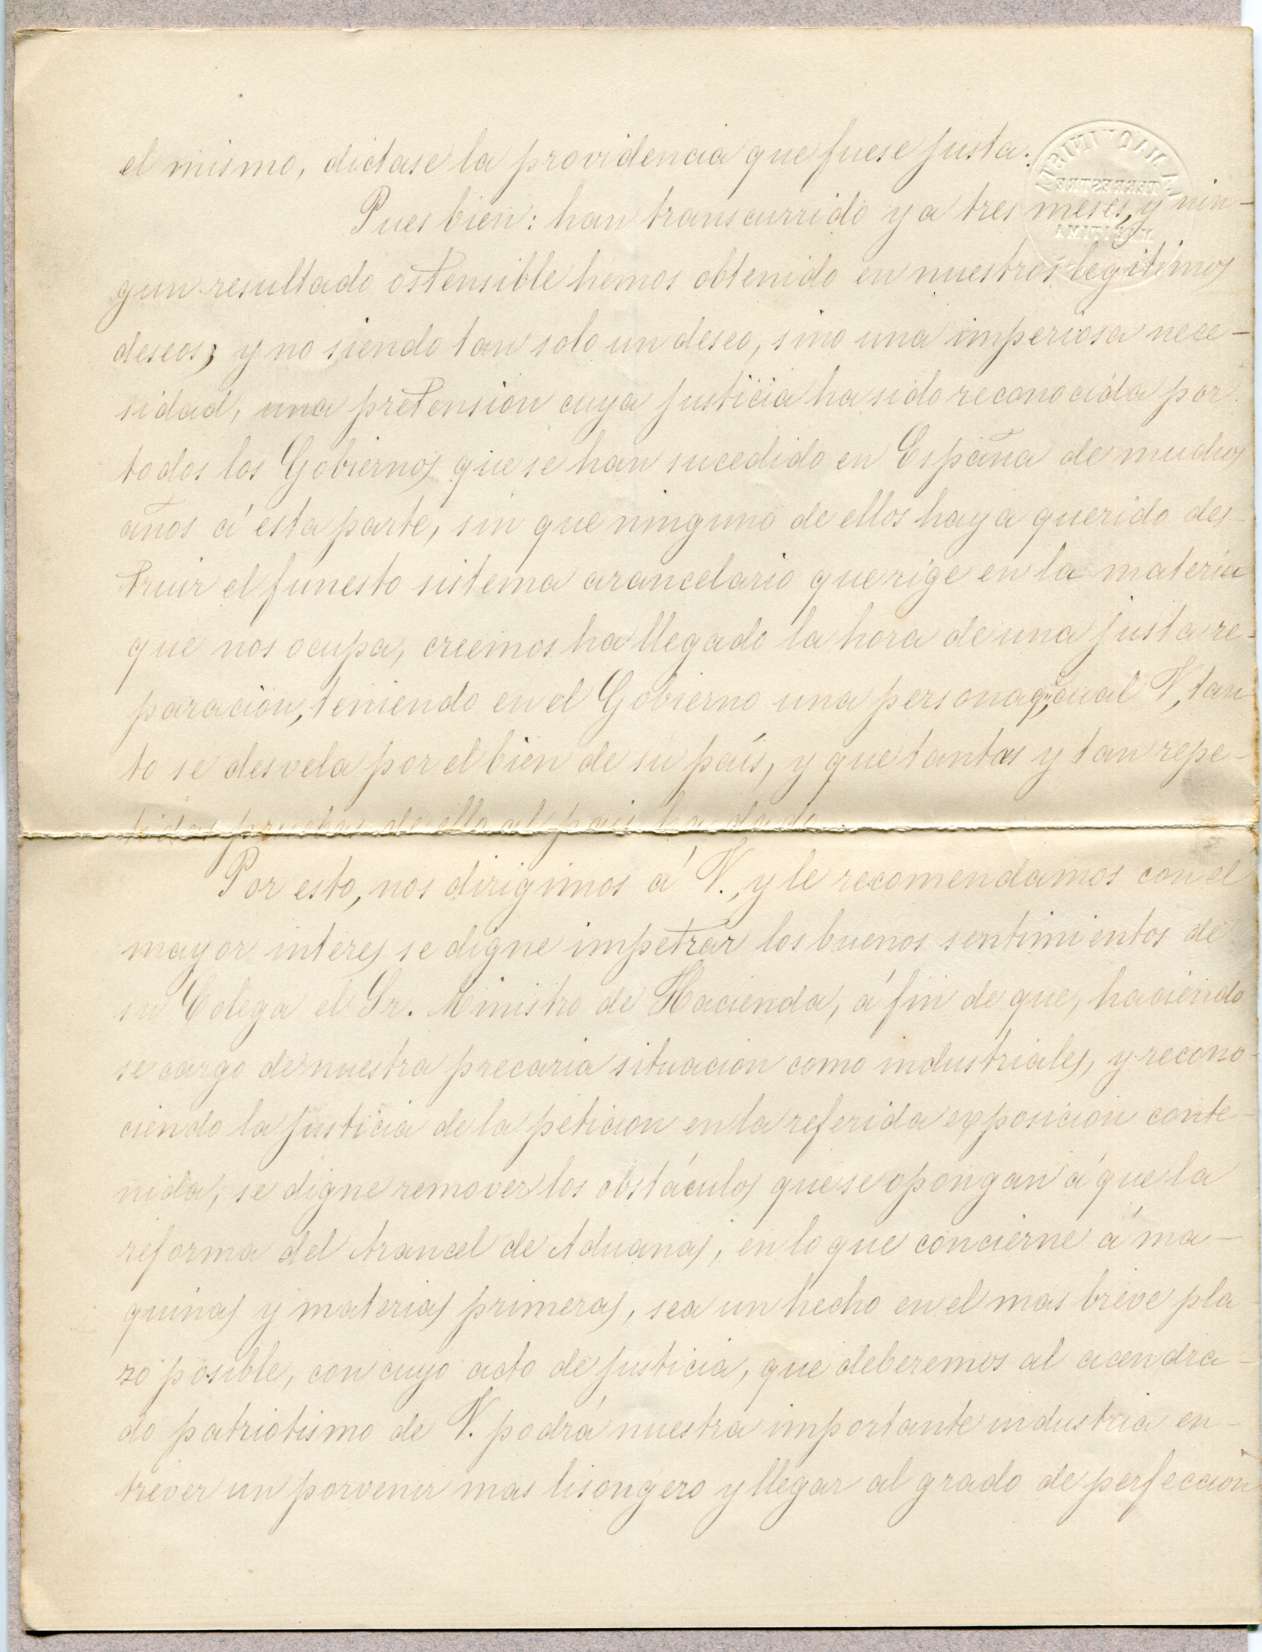 el mismo, dictase la providencia que fuese justa.
Pues bien: han transcurrido ya tres meses, y nin-
gun resultado ostensible hemos obtenido en nuestros legitimos
deseos; y no siendo tan solo un deseo, sino una imperiosa nece-
sidad, una pretension cuya justicia ha sido reconocida por
todos los Gobiernos que se han sucedido en España de muchos
años á esta parte, sin que ninguno de ellos haya querido des-
truir el funesto sistema arancelario que rige en la materia
que nos ocupa, creemos ha llegado la hora de una justa re-
paracion, teniendo en el Gobierno una persona q. cual V, tan
to se desvela por el bien de su país, y que tantas y tan repe-
tidas pruebas de ello al pais ha dado.
Por esto, nos dirigimos á V., y le recomendamos con el
mayor interes se digne impetrar los buenos sentimientos de
su Colega el Sr. Ministro de Hacienda, á fin de que, haciendo
se cargo de nuestra precaria situacion como industriales, y recono-
ciendo la justicia de la peticion en la referida exposicion conte-
nida, se digne remover los obstáculos que se opongan á que la
reforma del Arancel de Aduanas, en lo que concierne á ma-
quinas y materias primeras, sea un hecho en el mas breve pla-
zo posible, con cuyo acto de justicia, que deberemos al acendra-
do patriotismo de V. podrá nuestra importante industria en-
trever un porvenir mas lisongero y llegar al grado de perfeccion